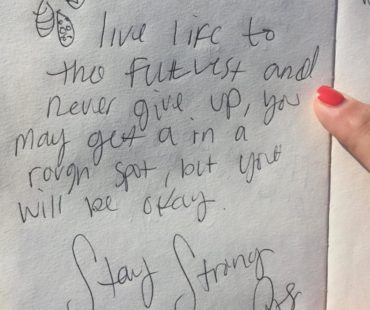 live life to
the fullest and
never give up, you
may get a in a
rough spot, but you
will be okay.
Stay Strong